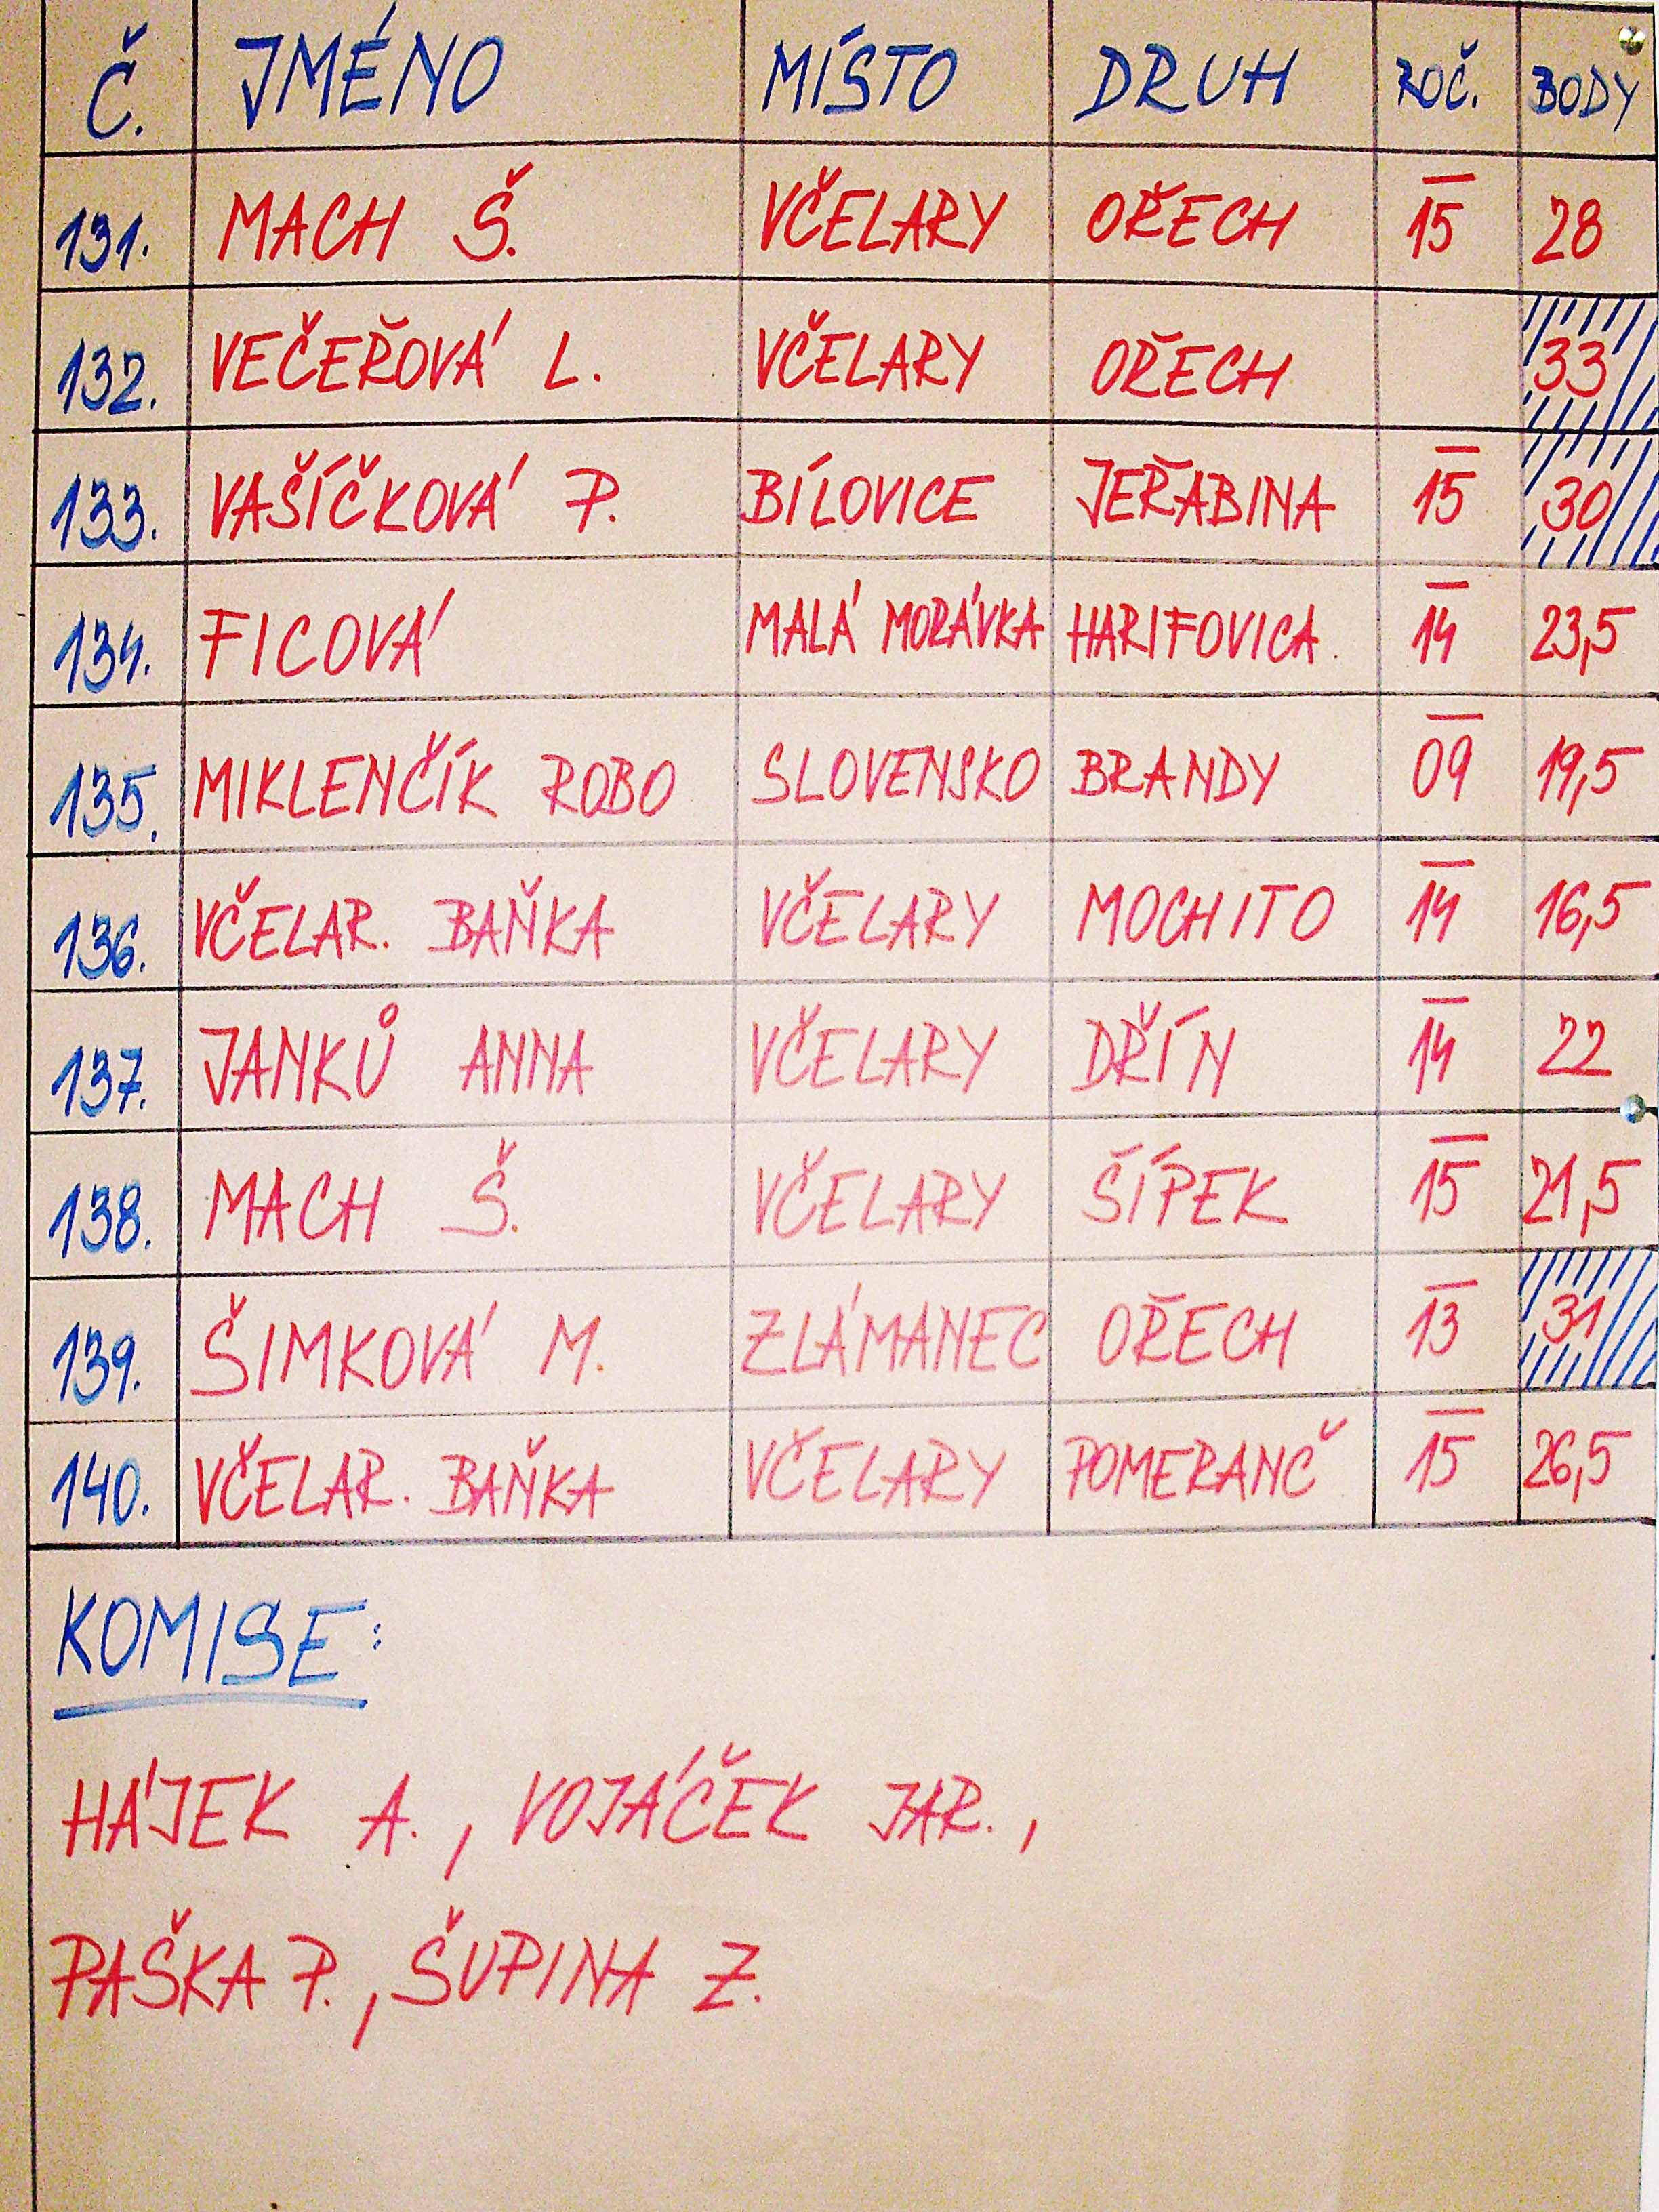 Č. JMÉNO MÍSTO DRUH ROČ. BODY
131. MACH Š. VČELARY OŘECH 15 28
132. VEČEŘOVÁ L. VČELARY OŘECH 33
133. VAŠÍČKOVÁ P. BÍLOVICE JEŘABINA 15 30
134. FICOVÁ MALÁ MORÁVKA HARIFOVICA. 14 23,5
135. MIKLENČÍK ROBO SLOVENSKO BRANDY 09 19,5
136. VČELAR. BAŇKA VČELARY MOCHITO 14 16,5
137. JANKŮ ANNA VČELARY DŘÍN 14 22
138. MACH Š. VČELARY ŠÍPEK 15 21,5
139. ŠIMKOVÁ M. ZLÁMANEC OŘECH 13 31
140. VČELAR. BAŇKA VČELARY POMERANČ 15 26,5
KOMISE:
HÁJEK A., VOJÁČEK JAR.,
PAŠKA P., ŠUPINA Z.